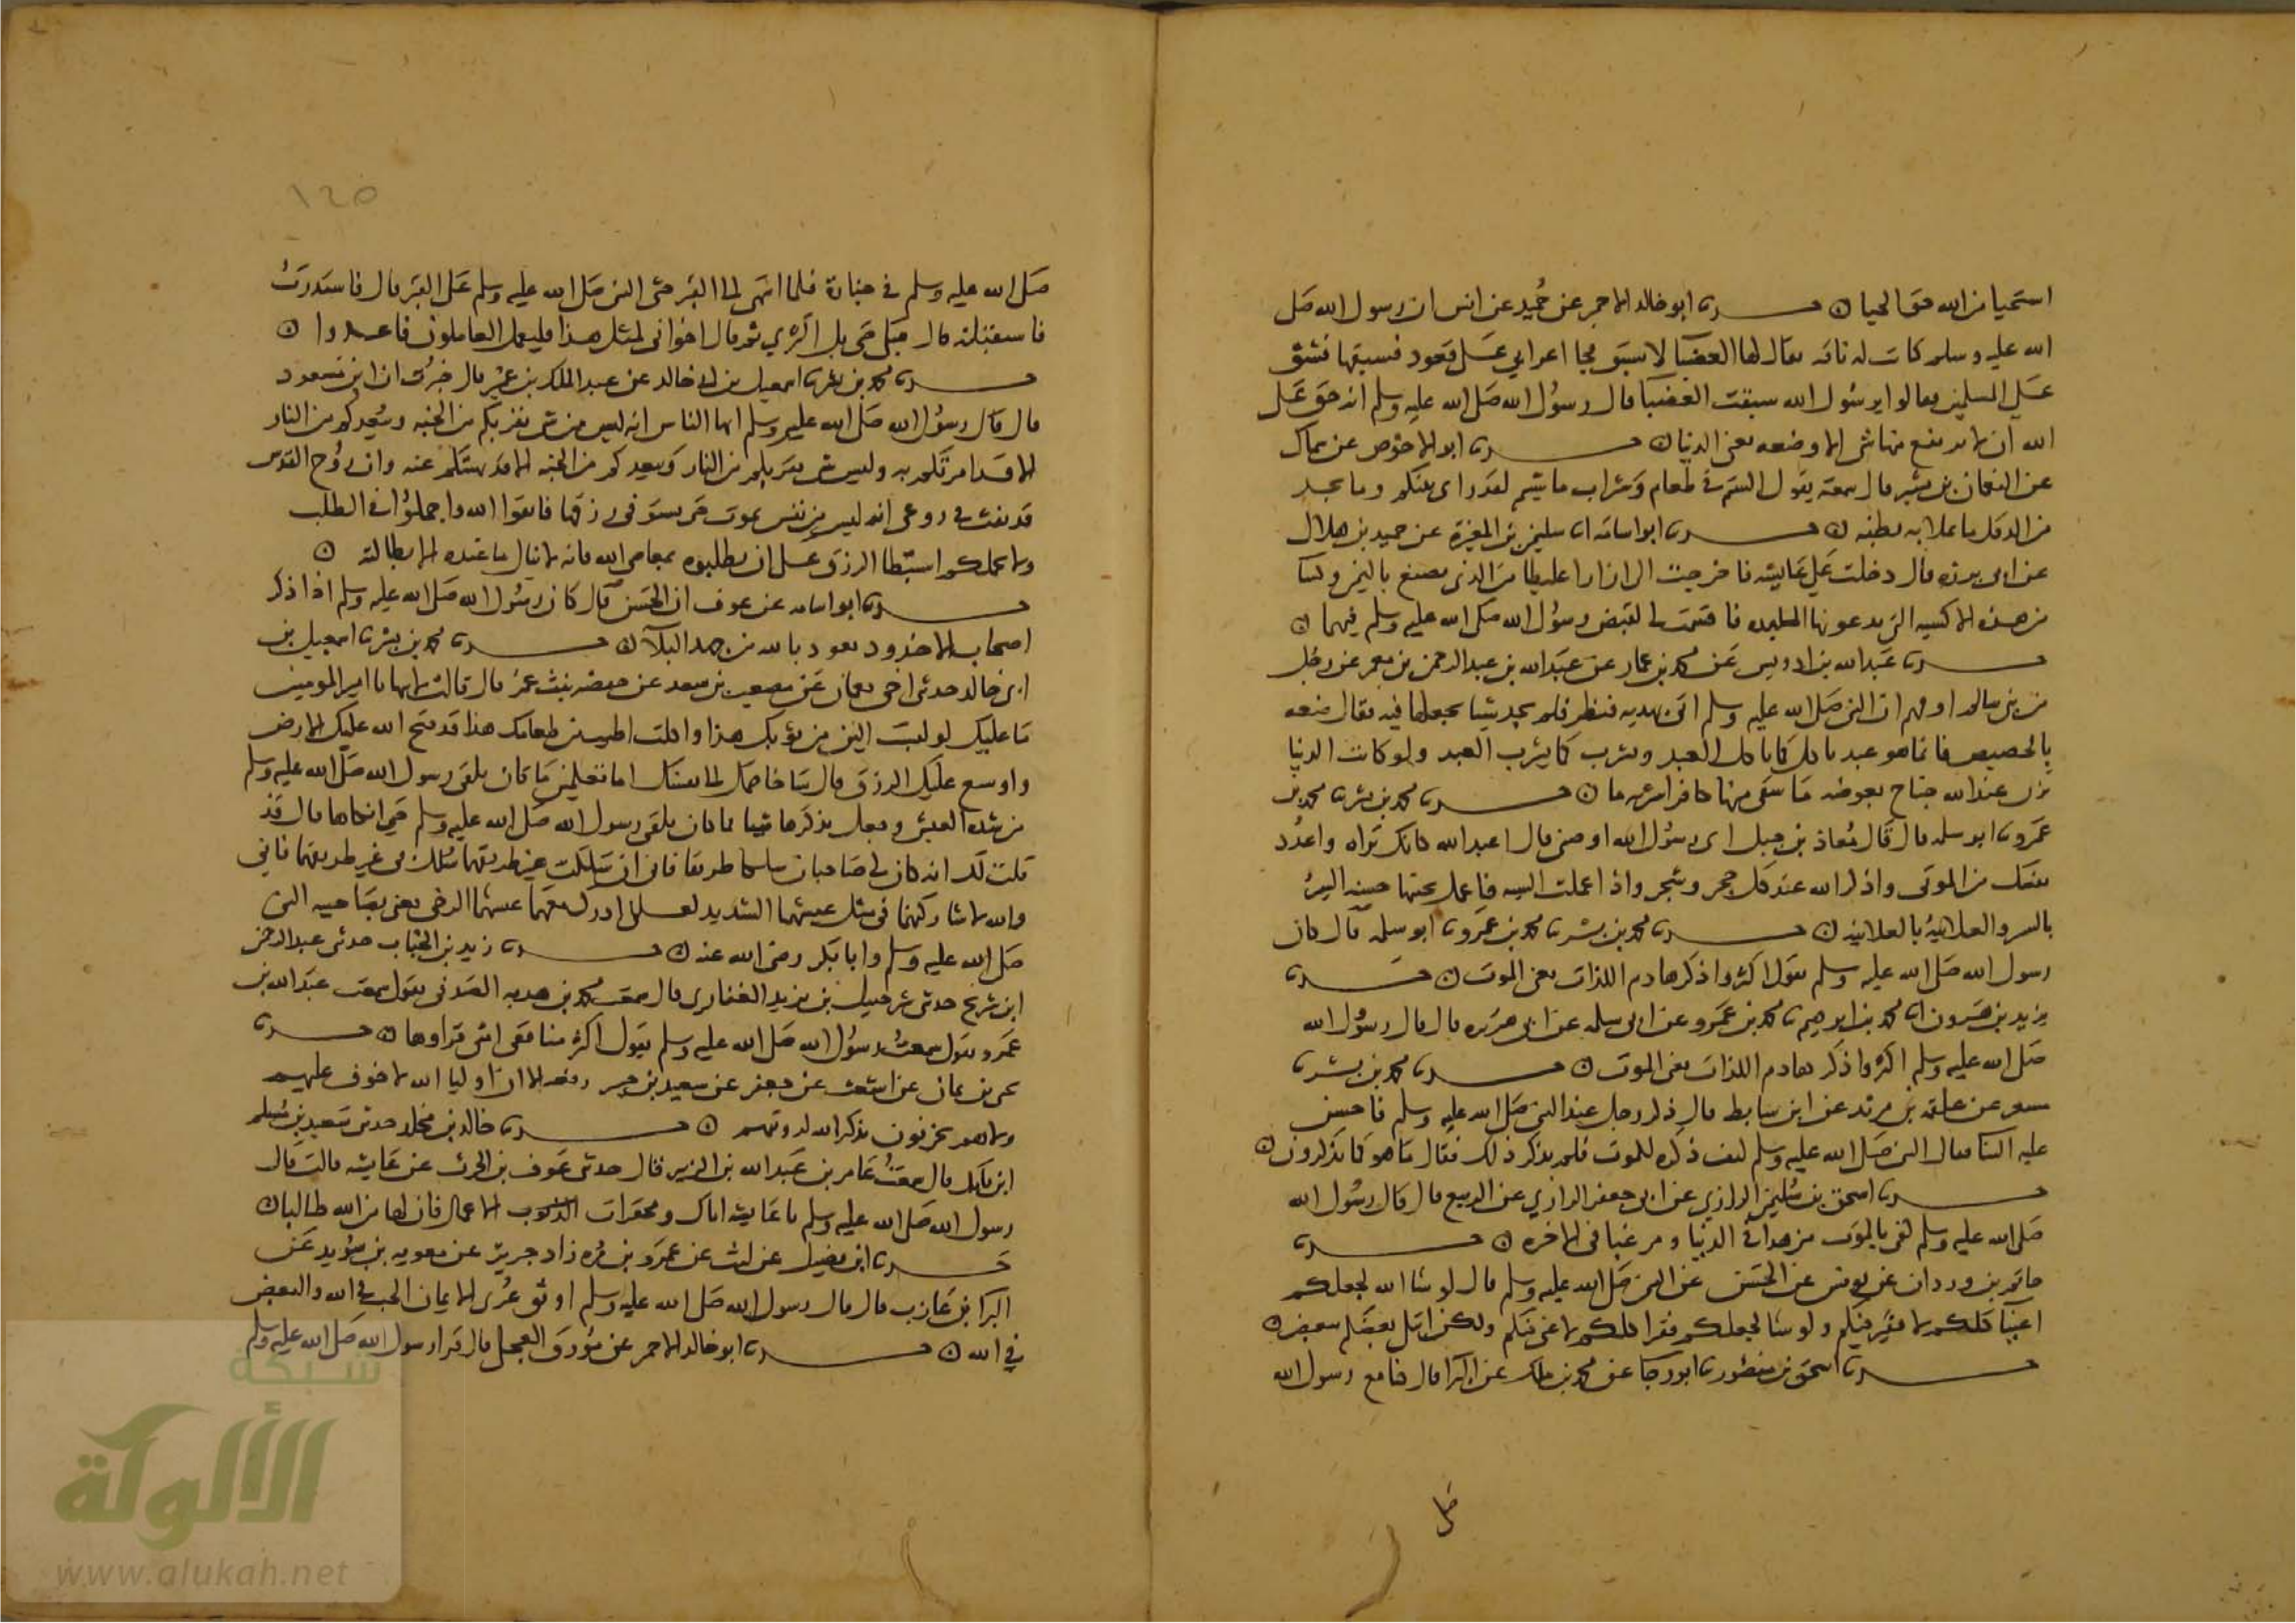 استحيا من الله حق الحيا ه حدثنا ابو خالد الاحمر عن حُميد عن انس ان رسول الله صَلى
الله عليه وسلم كانت له ناقه يقال لها العضبا لا تسبق فجا اعرابي عَلى قعود فسبقها فشق
عَلي المسلمين فقالوا يرسُول الله سبقت العضبَا قال رسُول الله صَلى الله عليه وسلم انه حَق عَلى
الله ان لا يرفع منها شي الا وضعه يعني الدنيا ه حدثنا ابو الاحوَص عن سماك
عن النعمان بن بشير قال سمعته يقول الستم في طعام وَشراب ما شيتم لقد راى نبيكم وما يجد
من الدقل ما يملا به بطنه ه حدثنا ابو اسامه انا سليمن بن المغيرَة عن حميد بن هلال
عن ابى برده قال دخلت عَلى عَايشه فاخرجت الي ازارا غليظا منَ الذى يصنع باليمن وكسا
من هذه الاكسيه التي يدعونها الملبده فاقسَمت لي لقبض رسوُل الله صَلى الله عليه وسلم فيهما ه
حدثنا عَبدالله بن ادريس عَن محمد بن عمار عن عبَدالله بن عبدالرحمن بن معمر عن رجُل
من بني سالم او فهم ان النبي صَلى الله عليه وسلم اتي بهديه فنظر فلم يجد شيا يجعلها فيه فقال ضعه
بالحضيض فانما هو عبد ياكل كما ياكل العبد ويشرب كما يشرب العبد ولو كانت الدنيا
تزن عند الله جناح بعوضه مَا سَقى منها كافرا شربه ما ه حدثنا محمد بن بشر نا محمد بن
عَمرو نا ابو سلمه قال قَال مُعاذ بن جبل اى رسُول الله اوصني قال اعبد الله كانك تَراه واعدُد
نفسَك من الموتى واذكر الله عند كل حجر وشجر واذا عملت السيه فاعمل بجنبها حسنه السِر
بالسر والعلانيهُ بالعلانيه ه حدثنا محمد بن بشر نا محمد بن عَمرو نا ابو سلمَه قال كان
رسول الله صَلى الله عليه وسلم يقول اكثروا ذكر هادم اللذات يعني الموت ه حدثنا
يزيد بن هَرون انا محمد بن ابرهيم نا محمد بن عَمرو عن ابى سلمه عن ابى هريره قال قال رسُول الله
صَلى الله عليه وسلم اكثروا ذكر هادم اللذات يعني الموت ه حدثنا محمد بن بشر نا
مسعر عن علقمه بن مرثد عن ابن سَابط قال ذُكر رجل عند النبي صَلى الله عليه وسلم فاحسن
عليه الثنا فقال النبي صَلى الله عليه وسلم كيف ذكره للموت فلم يذكر ذلك فقال مَا هو كما تذكرون ه
حدثنا اسحق بن سُليمن الرازي عن ابى جعفر الرازي عن الربيع قال قَال رسُول الله
صَلى الله عليه وسلم كفى بالموَت مزهدا في الدنيا ومرغبا في الاخره ه حدثنا
حاتم بن وردان عن يونس عن الحسَن عن النبي صَلى الله عليه وسلم قال لو شا الله لجعلكم
اغنيَا كلكم لا فقير فيكم ولو شا لجعلكم فقرا كلكم لا غنى فيكم ولكن ابتلى بعضَكم ببعض ه
حدثنا اسحَق بن منصور نا ابو رجَا عن محمد بن ملك عن البرا قال كنا مع رسول الله
صل
١٢٥
صَلى الله عليه وسلم في جنازة فلما انتهى الى القبر جثى النبي صَلى الله عليه وسلم عَلى القبر قال فاستدرَتُ
فاستقبلته قال فبكى حَتى بل الثرى ثم قال اخواني لمثل هذا فليعمل العاملون فاعدوا ه
حدثنا محمد بن بشر نا اسمعيل بن ابي خالد عن عبدالملك بن عمير قال خبرُت ان ابن مسعود
قال قَال رسوُل الله صَلى الله عليه وسلم ايها الناس انه ليس من شي يقربكم من الجنه ويبُعدكم من النار
الا قد امرتكم به وليس شي يقربكم من النار وَيبعدكم من الجنه الا قد نهيتَكم عنه وان رُوح القدس
قد نفث في روعى انه ليس من نفس تموت حَتى تستوفى رزقها فاتقوا الله واجملوُا في الطلب
ولا يحملكم استبطا الرزق عَلى ان تطلبوه بمعاصي الله فانه لا ينال ما عنده الا بطاعته ه
حدثنا ابو اسامه عن عوف ان الحَسَن قَال كان رسُول الله صَلى الله عليه وسلم اذا ذكر
اصحاب الاخدود تعوذ بالله من جهد البلآ ه حدثنا محمد بن بشر نا اسمعيل بن
ابى خالد حدثني اخى نعمان عَن مصعب بن سعد عن حفصه بنت عمَر قال قالت لابيها يا امير المومنين
مَا عليك لو لبسَت الين من ثوبك هذا واكلت اطيب من طعامك هذا قد فتح الله عليك الارض
واوسع عليَك الرزق قال سَاخاصمك الى نفسك اما تعلمينَ مَا كان يلقى رسول الله صَلى الله عليه وسلم
من شده العيش وجعل يذكرها شيا مما كان يلقى رسول الله صَلى الله عليه وسلم حَتى ابكاها قال قَد
قلت لك انه كان لي صَاحبان سلكا طريقا فاني ان سَلكت غير طريقهما سُلك بي غير طريقهما فاني
والله لاشاركنهما في مثل عيشهما الشديد لعلي ادرك معَهما عيشهما الرخي يعني بصَاحبيه النبي
صَلى الله عليه وسلم وابا بَكر رضى الله عنه ه حدثنا زيد بن الحُباب حدثني عبدالرحمن
ابن شريح حدثني شرحبيل بن يزيد المغافري قال سمعت محمد بن هديه الصَدفى يقول سمعت عَبدالله بن
عَمرو يقول سمعتُ رسوُل الله صَلى الله عليه وسلم يقول اكثر منافقى امتى قراوها ه حدثنا
يحيى بن يمان عن اشعث عن جعفر عن سعيد بن جبير رفعه الا ان اوليا الله لا خوف عليهم
ولا هم يحزنون يذكر الله لرويتهم ه حدثنا خالد بن مخلد حدثني سَعيد بن مُسلم
ابن بانك قال سمعَتُ عَامر بن عَبدالله بن الزبير قال حدثني عَوف بن الحرث عن عَايشه قالت قال
رسول الله صَلى الله عليه وسلم يا عَايشه اياك ومحقرات الاعمال فان لها من الله طالبا ه
حَدثنا ابن فضيل عن ليث عن عمَرو بن مُره زاد جرير عن معويه بن سُويد عَن
البرا بن عَازب قال قال رسول الله صَلى الله عليه وسلم اوثق عُرى الايمان الحب في الله والبغض
في الله ه حدثنا ابو خالد الاحمر عن مُورق العجلى قال قرا رسول الله صَلى الله عليه وسلم
شبكة
الألوكة
www.alukah.net